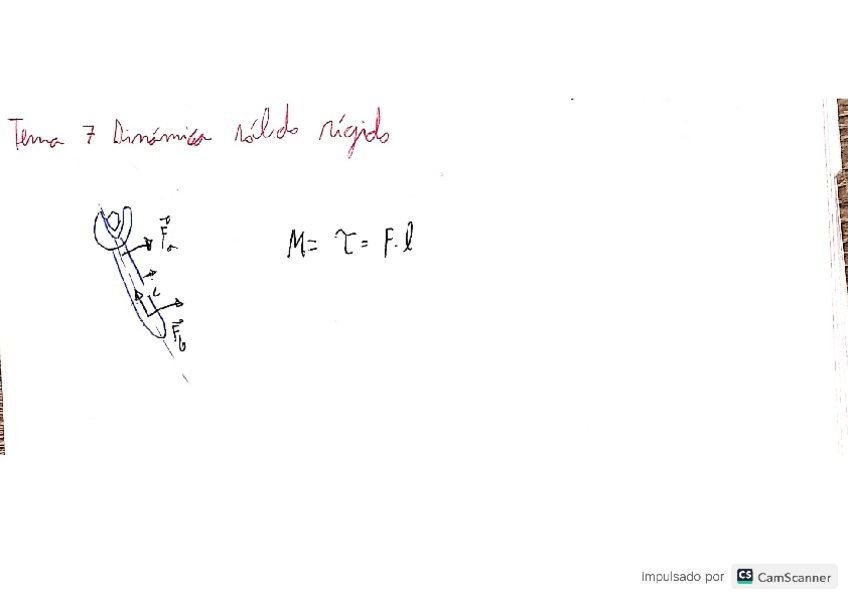 Tema 7 Dinámica sólido rígido
F⃗a
M = τ = F · l
F⃗b
Impulsado por CS CamScanner